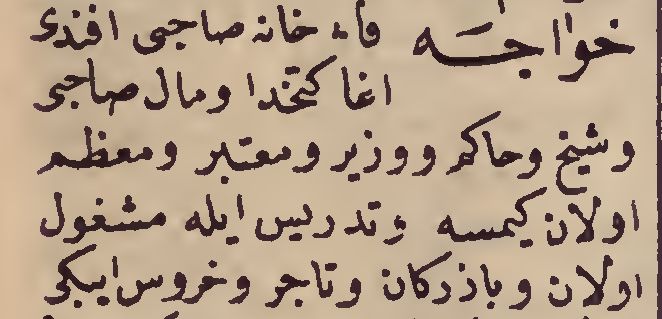 خواجَه فاء خانه صاحبى افندى
اغا كتخدا ومال صاحبى
وشيخ وحاكم ووزير ومعتبر ومعظم
اولان كيمسه وتدريس ايله مشغول
اولان وبازركان وتاجر وخروس ايبكى